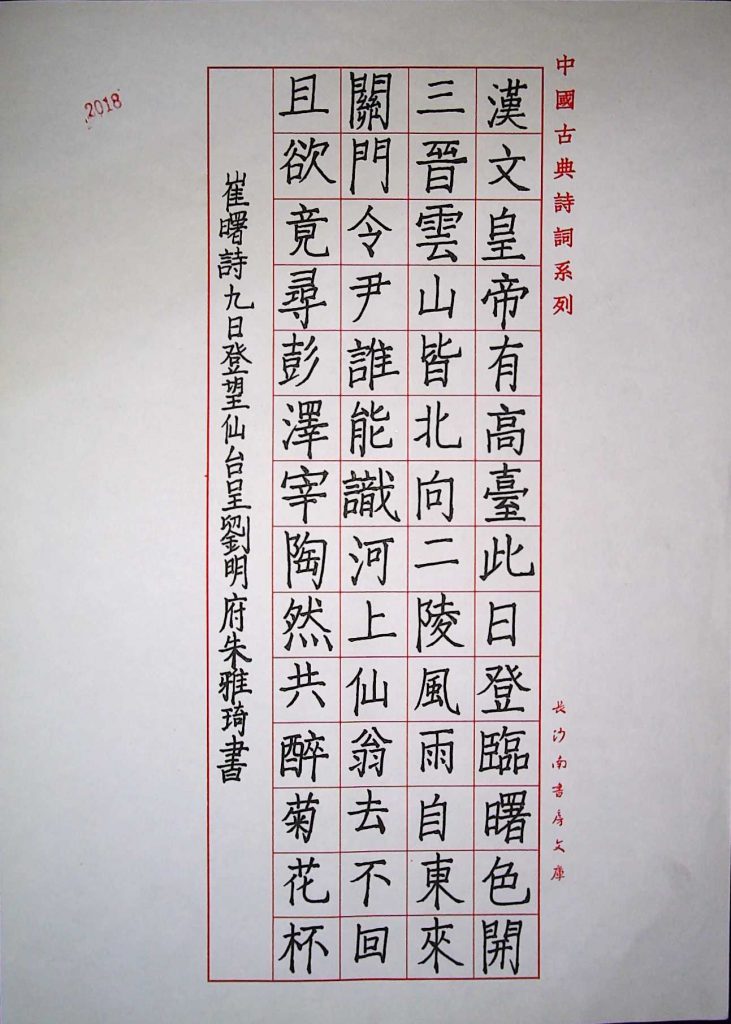 中國古典詩詞系列
長沙南書房文庫
漢文皇帝有高臺此日登臨曙色開
三晉雲山皆北向二陵風雨自東來
關門令尹誰能識河上仙翁去不回
且欲竟尋彭澤宰陶然共醉菊花杯
崔曙詩九日登望仙台呈劉明府朱雅琦書
2018